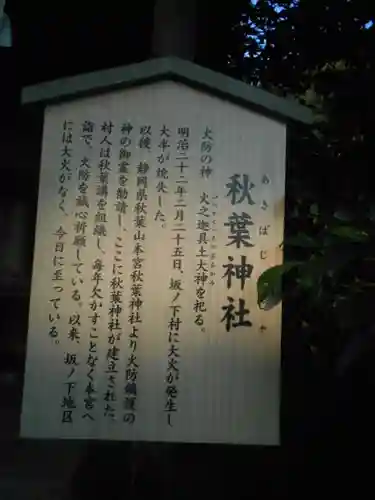 あきばじんじゃ
秋葉神社
火防の神　火之迦具土大神を祀る。
明治二十二年二月二十五日、坂ノ下村に大火が発生し
大半が焼失した。
以後、静岡県秋葉山本宮秋葉神社より火防鎮護の
神の御霊を勧請し、ここに秋葉神社が建立された。
村人は秋葉講を組織し、毎年欠かすことなく本宮へ
詣で、火防を誠心祈願している。以来、坂ノ下地区
には大火がなく、今日に至っている。